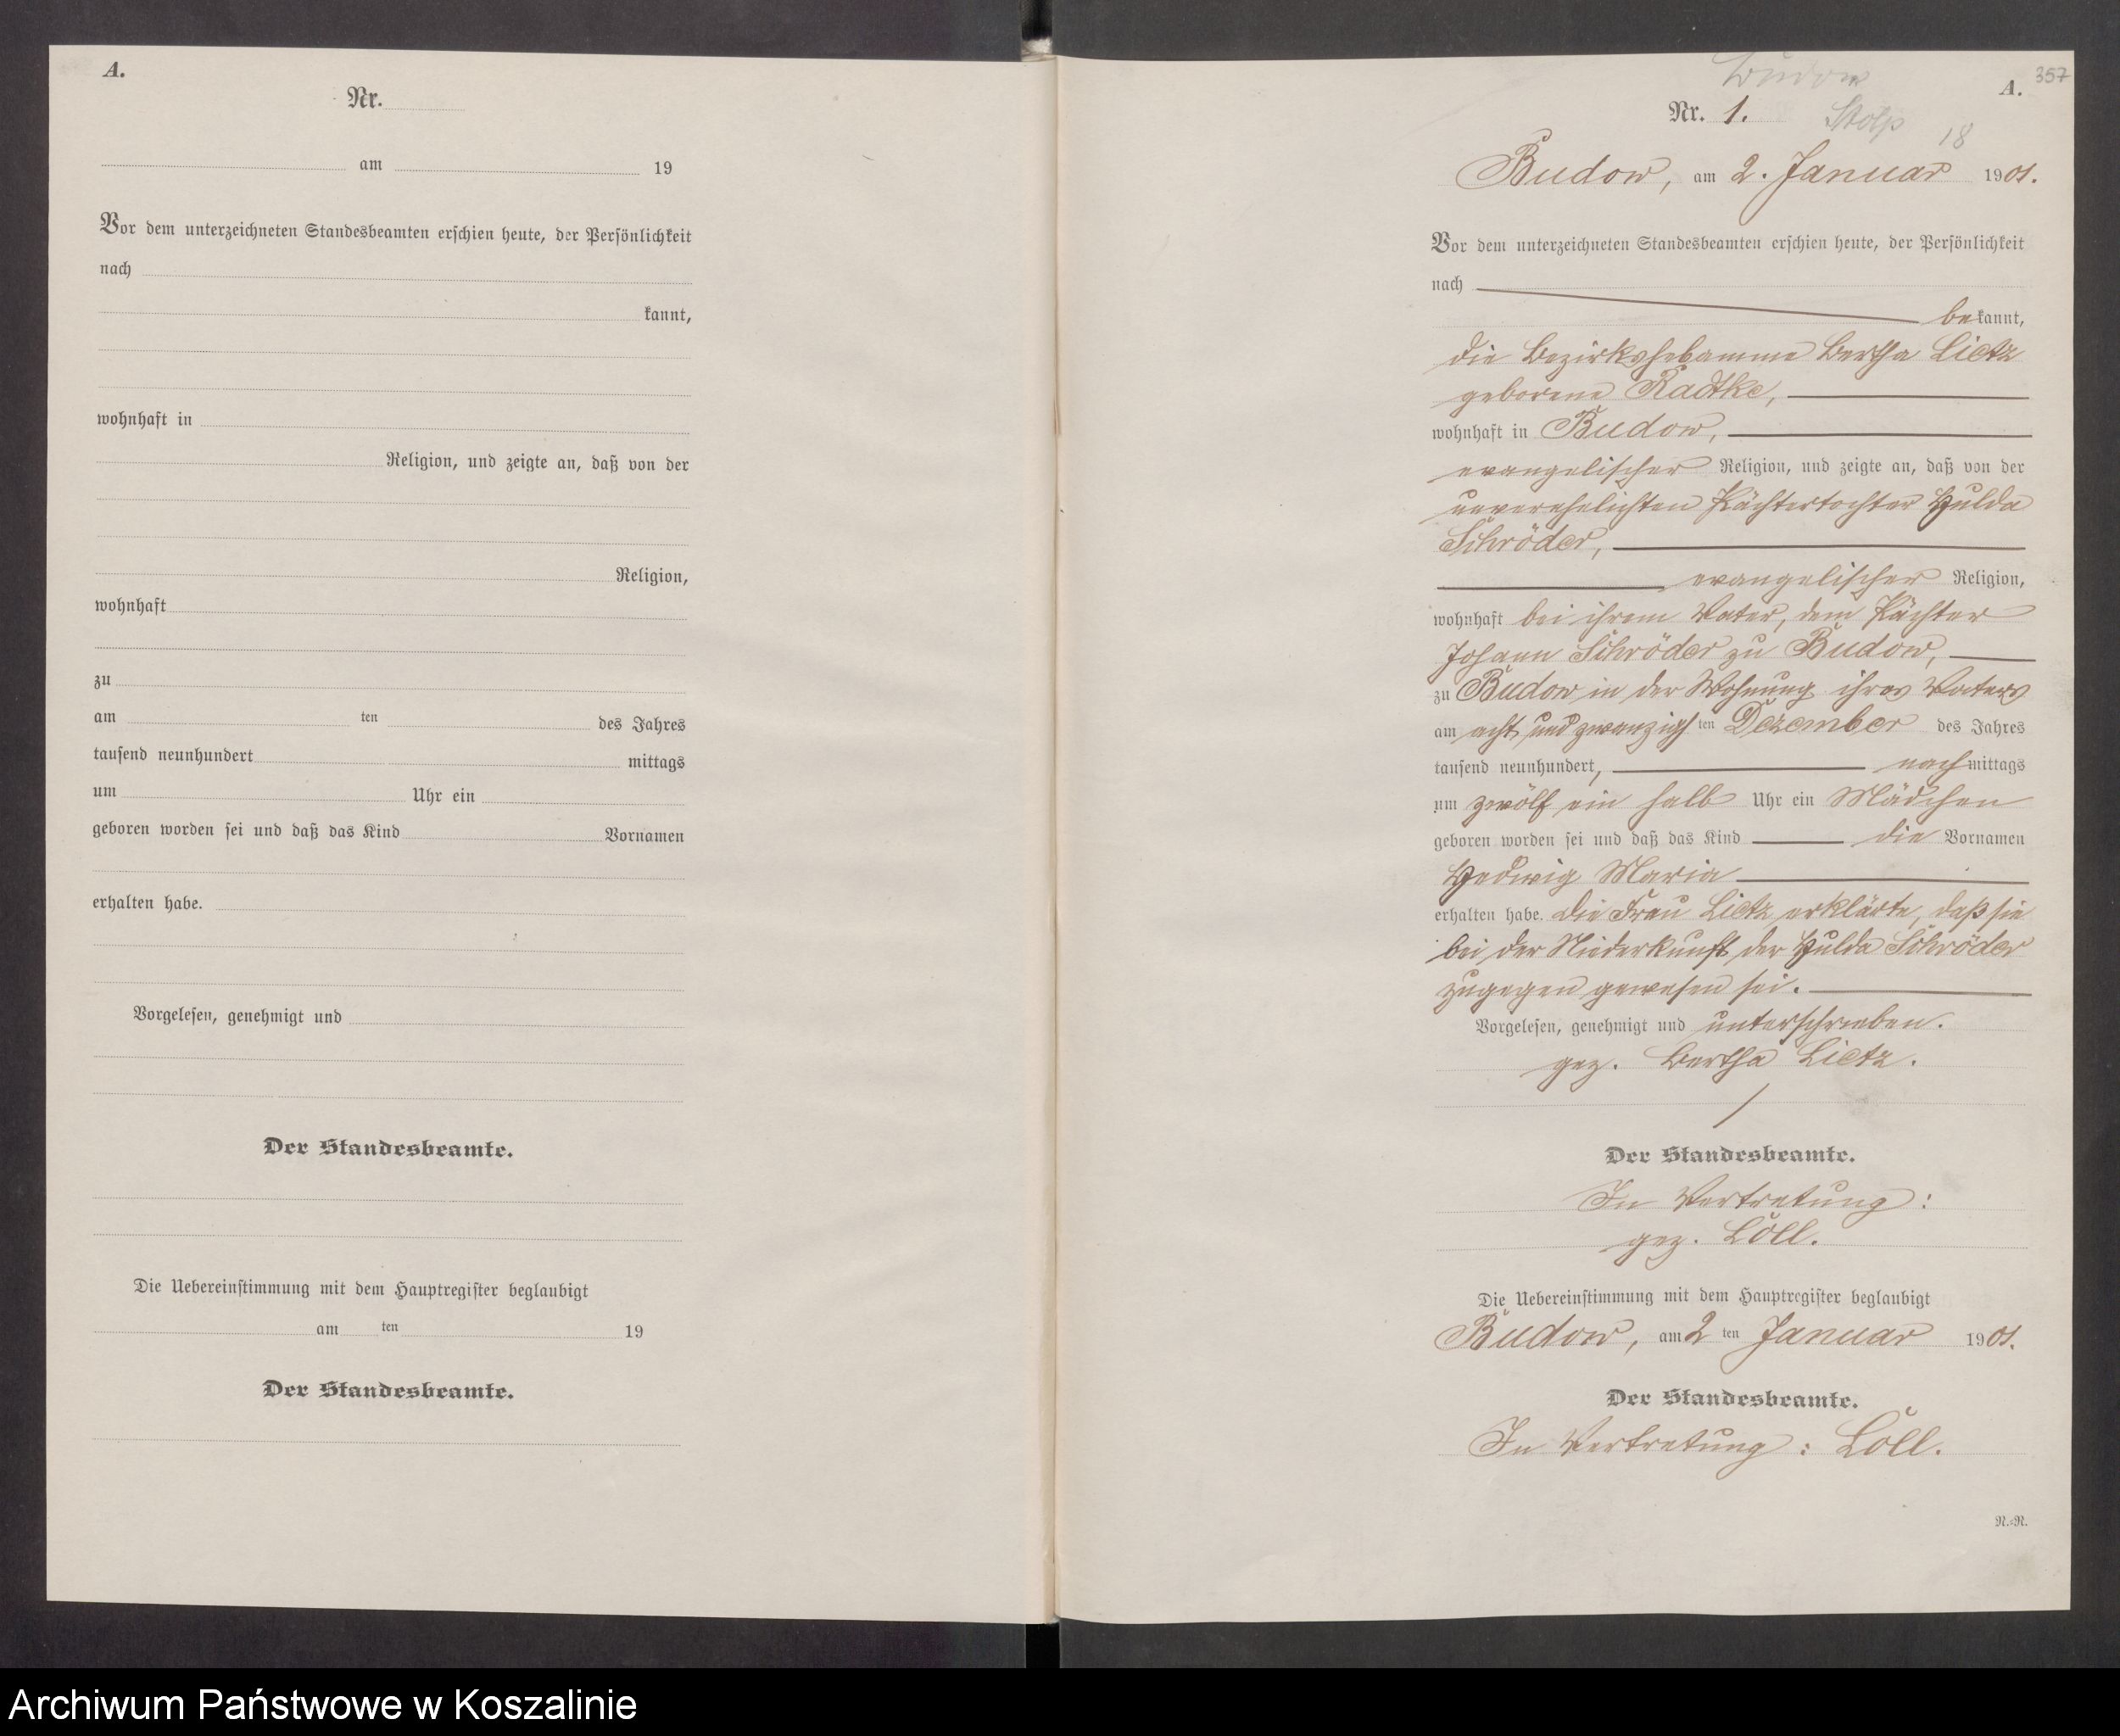 A.
Nr.
am 19
Vor dem unterzeichneten Standesbeamten erschien heute, der Persönlichkeit
nach
kannt,
wohnhaft in
Religion, und zeigte an, daß von der
Religion,
wohnhaft
zu
am ten des Jahres
tausend neunhundert mittags
um Uhr ein
geboren worden sei und daß das Kind Vornamen
erhalten habe.
Vorgelesen, genehmigt und
Der Standesbeamte.
Die Uebereinstimmung mit dem Hauptregister beglaubigt
am ten 19
Der Standesbeamte.
Budow
A. 357
Nr. 1. Stolp
18
Budow, am 2. Januar 1901.
Vor dem unterzeichneten Standesbeamten erschien heute, der Persönlichkeit
nach
bekannt,
die Bezirkshebamme Bertha Lietz
geborene Radtke,
wohnhaft in Budow,
evangelischer Religion, und zeigte an, daß von der
unverehelichten Pächtertochter Hulda
Schröder,
evangelischer Religion,
wohnhaft bei ihrem Vater, dem Pächter
Johann Schröder zu Budow,
zu Budow in der Wohnung ihres Vaters
am acht und zwanzigsten Dezember des Jahres
tausend neunhundert, nachmittags
um zwölf ein halb Uhr ein Mädchen
geboren worden sei und daß das Kind die Vornamen
Hedwig Maria
erhalten habe. Die Frau Lietz erklärte, daß sie
bei der Niederkunft der Hulda Schröder
zugegen gewesen sei.
Vorgelesen, genehmigt und unterschrieben.
gez. Bertha Lietz.
Der Standesbeamte.
In Vertretung:
gez. Löll.
Die Uebereinstimmung mit dem Hauptregister beglaubigt
Budow, am 2 ten Januar 1901.
Der Standesbeamte.
In Vertretung: Löll.
N.-N.
Archiwum Państwowe w Koszalinie